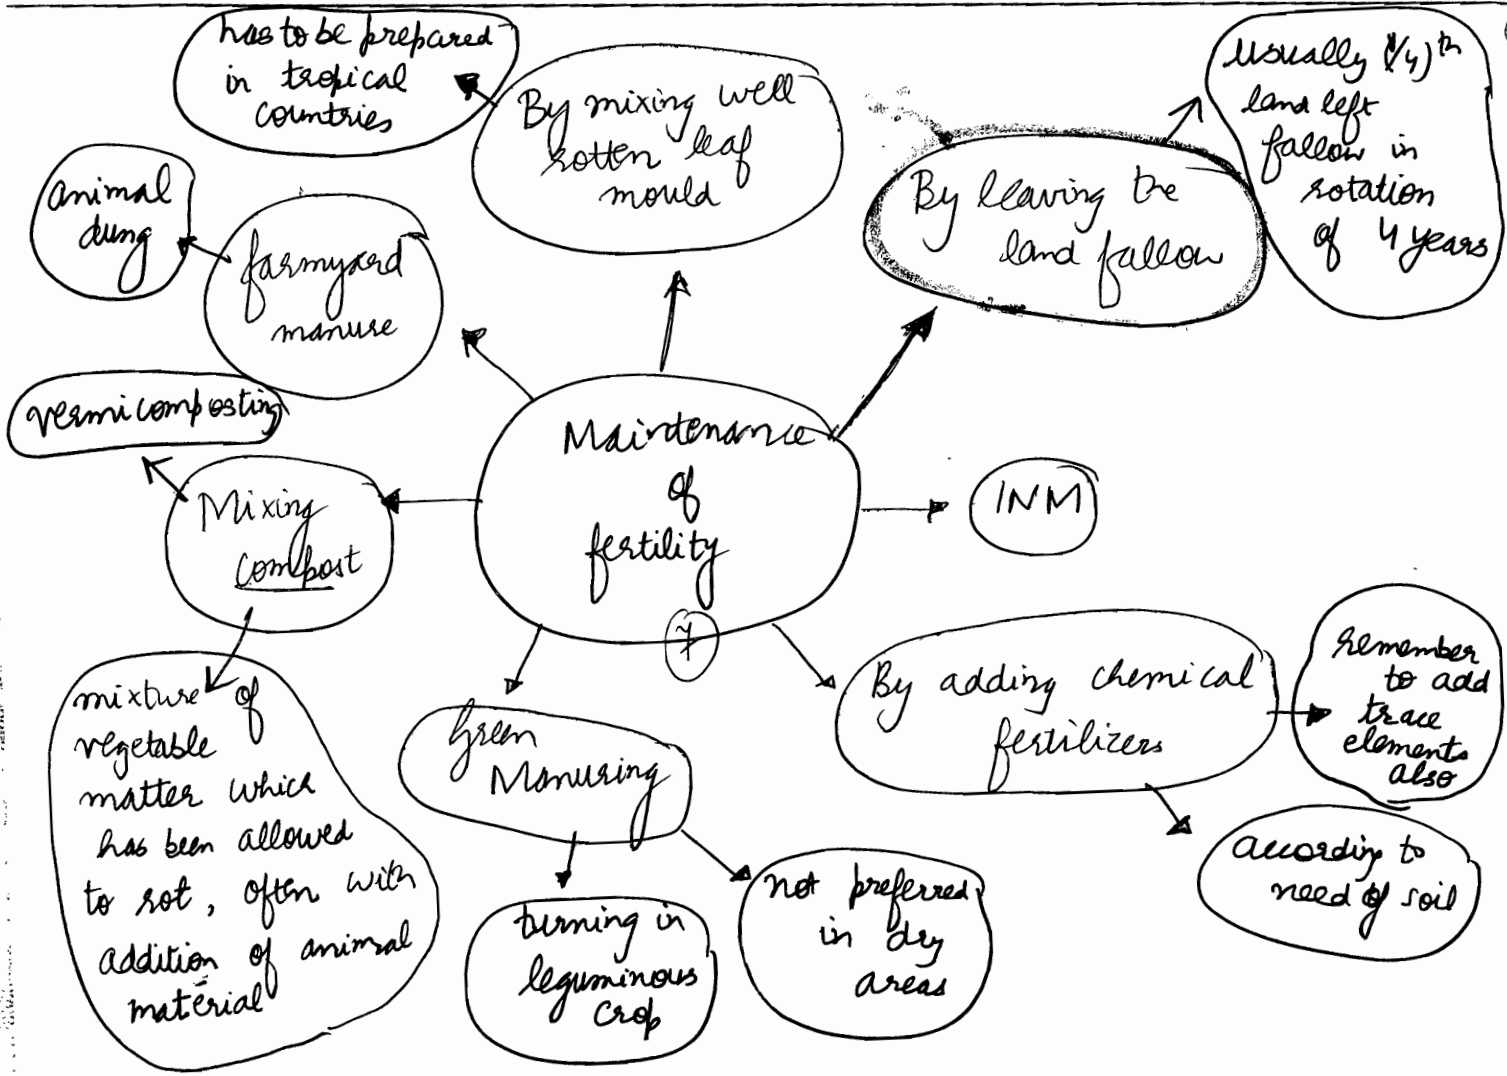 has to be prepared
in tropical
countries
By mixing well
rotten leaf
mould
Usually (1/4)th
land left
fallow in
rotation
of 4 years
By leaving the
land fallow
animal
dung
farmyard
manure
vermicomposting
Mixing
compost
Maintenance
of
fertility
7
INM
mixture of
vegetable
matter which
has been allowed
to rot, often with
addition of animal
material
Green
Manuring
turning in
leguminous
crop
not preferred
in dry
areas
By adding chemical
fertilizers
remember
to add
trace
elements
also
according to
need of soil